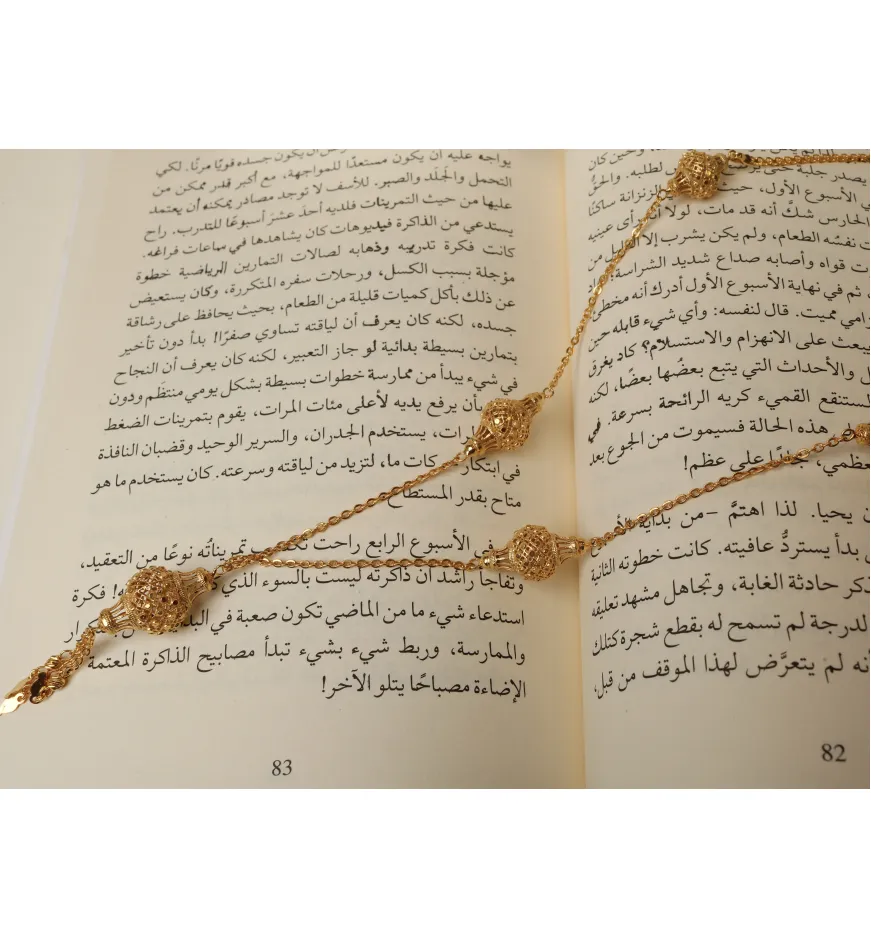 يصدر جلبة حتى
لطلبه. والحقُّ
الأسبوع الأول، حيث
الزنزانة ساكنًا
الحارس شكَّ أنه قد مات، لولا أن رأى عينيه
نفسُه الطعام، ولم يكن يشرب إلا القليل من
قواه وأصابه صداع شديد الشراسة
ثم في نهاية الأسبوع الأول أدرك أنه مخطئ
مميت. قال لنفسه: وأي شيء قابله حين
يبعث على الانهزام والاستسلام؟ كاد يغرق
والأحداث التي يتبع بعضُها بعضًا، لكنه
المستنقع القميء كريه الرائحة بسرعة. في
هذه الحالة فسيموت من الجوع بعد
جلدًا على عظم!
يحيا. لذا اهتمَّ -من بداية
بدأ يستردُّ عافيته. كانت خطوته الثانية
حادثة الغابة، وتجاهل مشهد تعليقه
لدرجة لم تسمح له بقطع شجرة كتلك
أنه لم يتعرَّض لهذا الموقف من قبل،
82
يواجه عليه أن يكون مستعدًا للمواجهة، مع أكبر قدر ممكن من
التحمل والجَلَد والصبر. للأسف لا توجد مصادر يمكنه أن يعتمد
عليها من حيث التمرينات فلديه أحدَ عشرَ أسبوعًا للتدرب. راح
يستدعي من الذاكرة فيديوهات كان يشاهدها في ساعات فراغه.
كانت فكرة تدريبه وذهابه لصالات التمارين الرياضية خطوة
مؤجلة بسبب الكسل، ورحلات سفره المتكررة، وكان يستعيض
عن ذلك بأكل كميات قليلة من الطعام، بحيث يحافظ على رشاقة
جسده، لكنه كان يعرف أن لياقته تساوي صفرًا! بدأ دون تأخير
بتمارين بسيطة بدائية لو جاز التعبير، لكنه كان يعرف أن النجاح
في شيء يبدأ من ممارسة خطوات بسيطة بشكل يومي منتظَم ودون
بأن يرفع يديه لأعلى مئات المرات، يقوم بتمرينات الضغط
يستخدم الجدران، والسرير الوحيد وقضبان النافذة
في ابتكار ما، لتزيد من لياقته وسرعته. كان يستخدم ما هو
متاح بقدر المستطاع
في الأسبوع الرابع راحت تمريناتُه نوعًا من التعقيد،
وتفاجأ راشد أن ذاكرته ليست بالسوء الذي فكرة
استدعاء شيء ما من الماضي تكون صعبة في
والممارسة، وربط شيء بشيء تبدأ مصابيح الذاكرة المعتمة
الإضاءة مصباحًا يتلو الآخر!
83